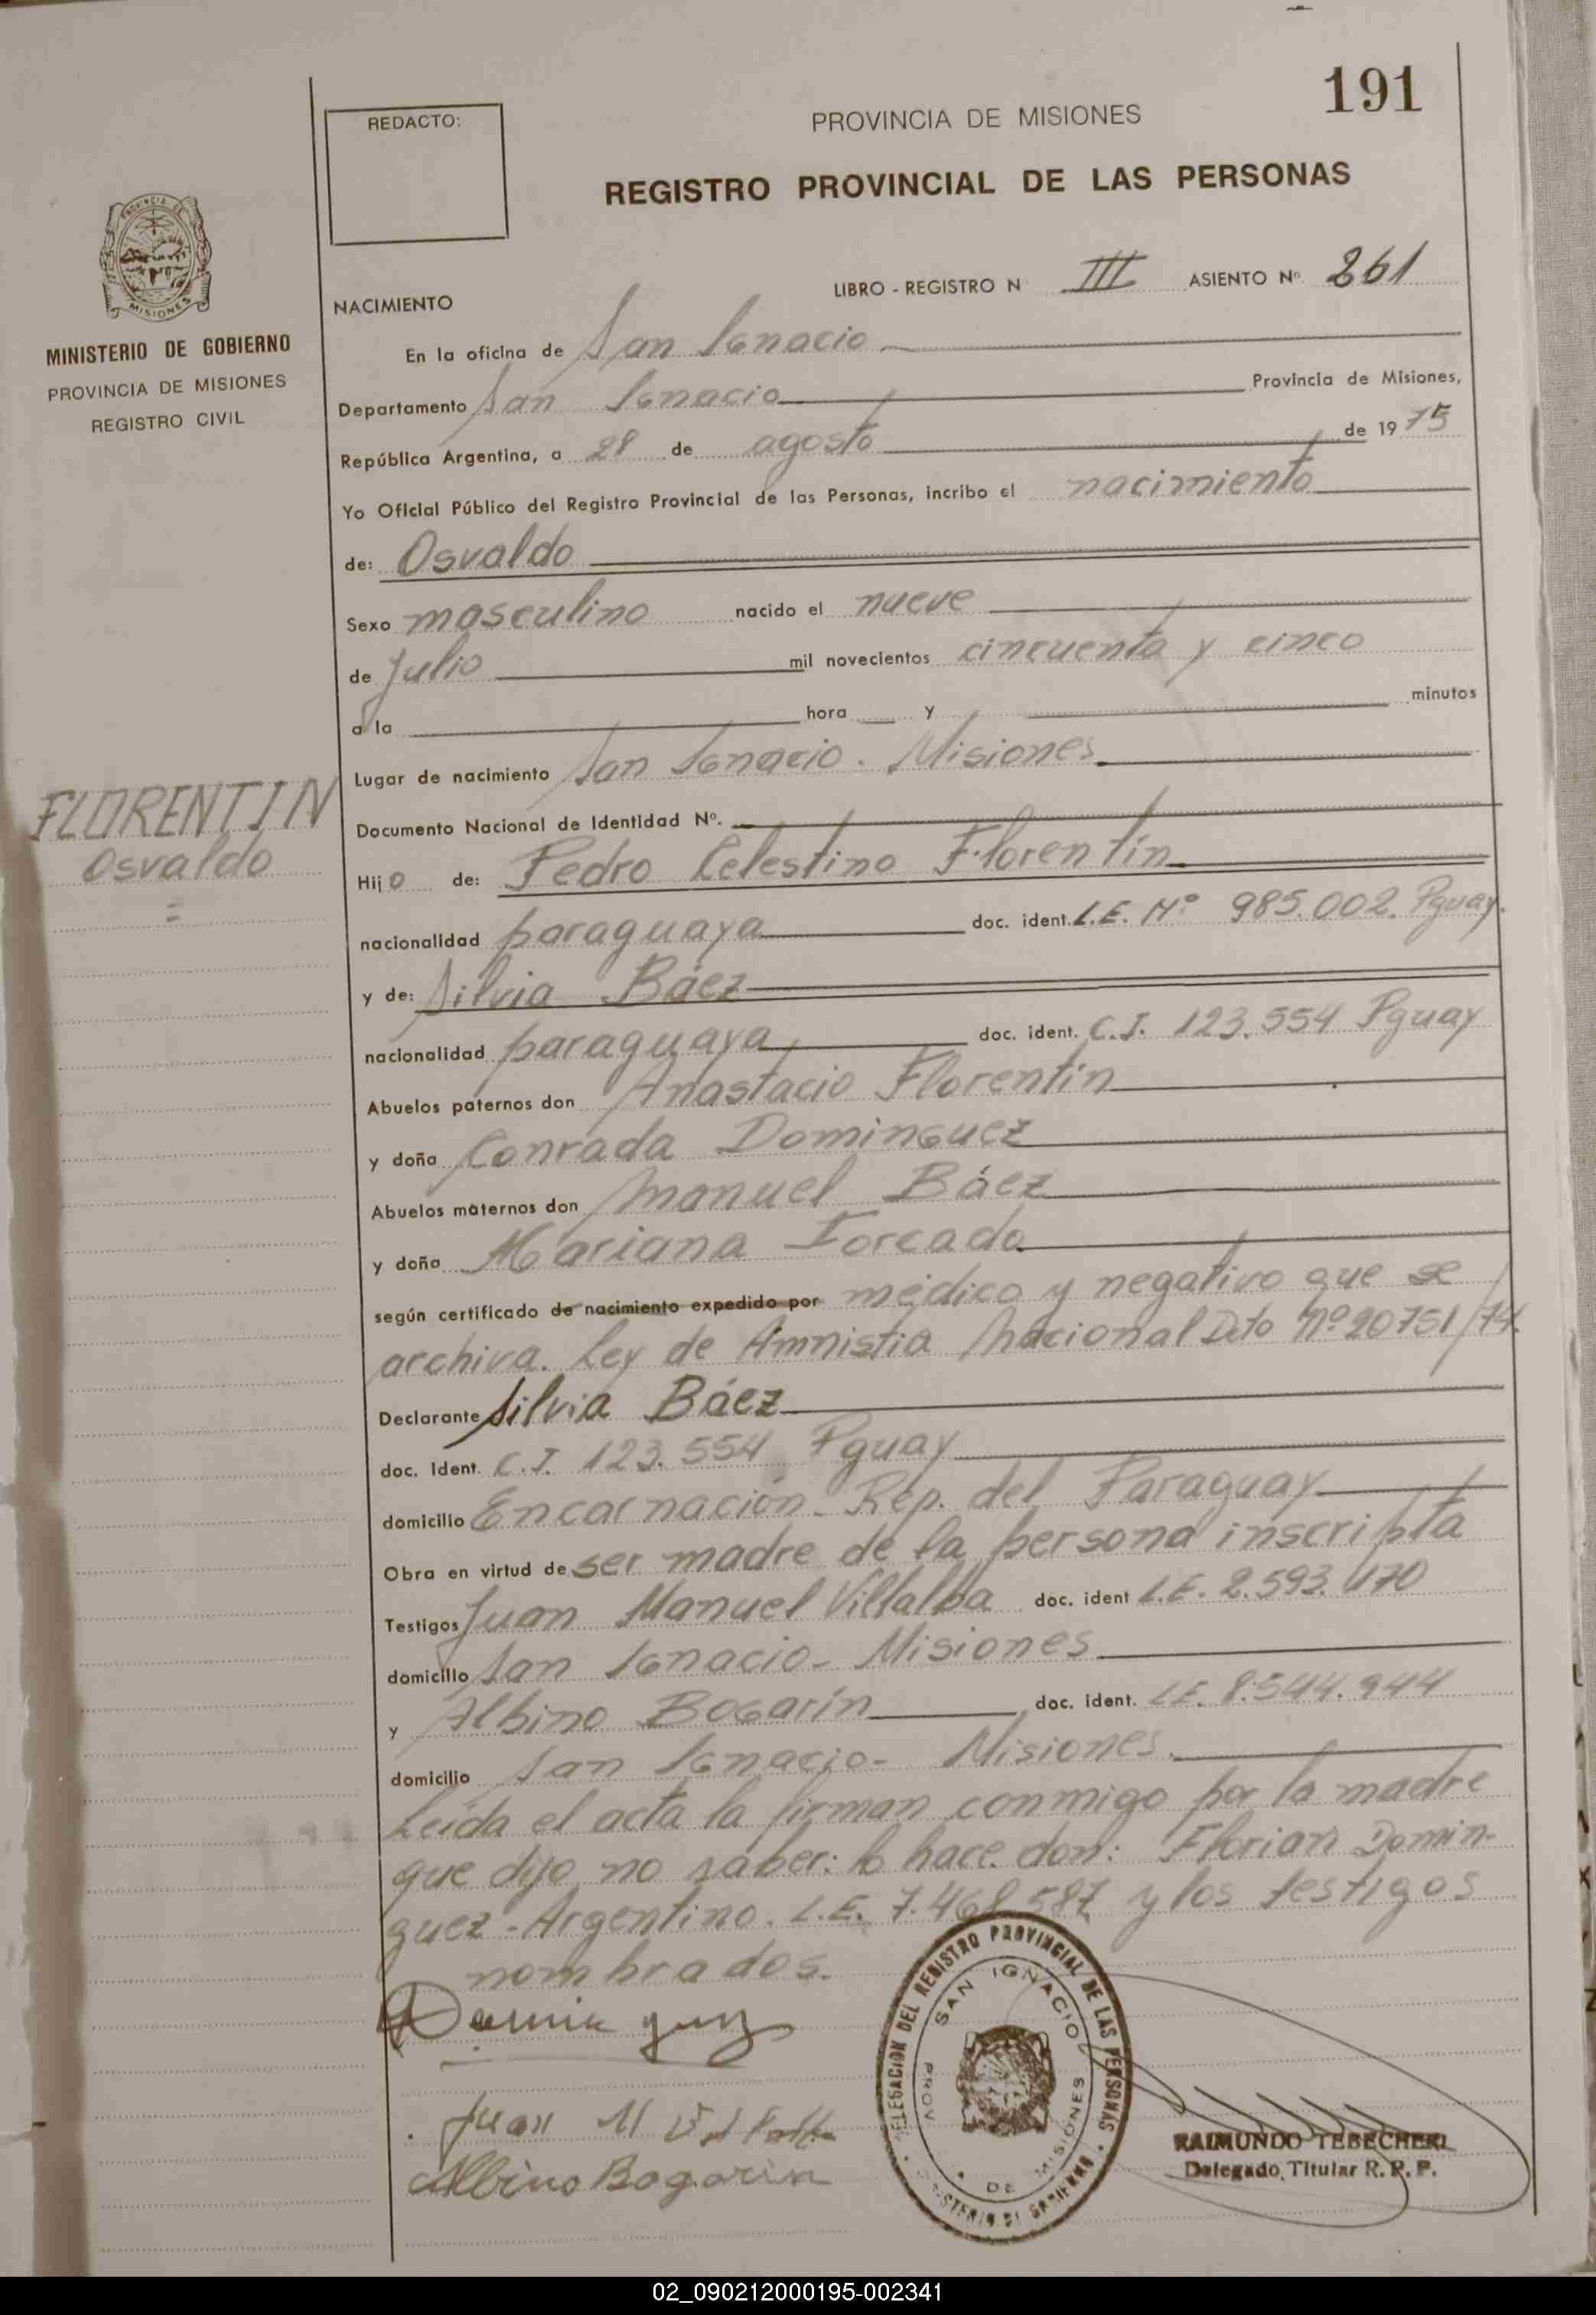 191
REDACTO:
PROVINCIA DE MISIONES
REGISTRO PROVINCIAL DE LAS PERSONAS
PROVINCIA DE
MISIONES
MINISTERIO DE GOBIERNO
PROVINCIA DE MISIONES
REGISTRO CIVIL
LIBRO - REGISTRO N III ASIENTO Nº 261
NACIMIENTO
En la oficina de San Ignacio
Departamento San Ignacio Provincia de Misiones,
República Argentina, a 28 de agosto de 1975
Yo Oficial Público del Registro Provincial de las Personas, incribo el nacimiento
de: Osvaldo
Sexo masculino nacido el nueve
de Julio mil novecientos cincuenta y cinco
a la hora y minutos
Lugar de nacimiento San Ignacio. Misiones
FLORENTIN
Osvaldo
Documento Nacional de Identidad Nº.
Hijo de: Pedro Celestino Florentín
nacionalidad paraguaya doc. ident. L.E. Nº 985.002. Pguay.
y de: Silvia Báez
nacionalidad paraguaya doc. ident. C.I. 123.554 Pguay
Abuelos paternos don Anastacio Florentín
y doña Conrada Dominguez
Abuelos maternos don Manuel Báez
y doña Mariana Forcado
según certificado de nacimiento expedido por médico y negativo que se
archiva. Ley de Amnistia Nacional Dto Nº 20751/74.
Declarante Silvia Báez
doc. Ident. C.I. 123.554 Pguay
domicilio Encarnación - Rep. del Paraguay
Obra en virtud de ser madre de la persona inscripta
Testigos Juan Manuel Villalba doc. ident L.E. 2.593.470
domicilio San Ignacio - Misiones
y Albino Bogarín doc. ident. L.E. 8.544.944
domicilio San Ignacio - Misiones.
Leída el acta la firman conmigo por la madre
que dijo no saber: lo hace don: Florian Domin-
guez - Argentino. L.E. 7.468.587 y los testigos
nombrados.
Dominguez
Juan M Villalba
Albino Bogarin
DELEGACION DEL REGISTRO PROVINCIAL DE LAS PERSONAS
SAN IGNACIO
PROV. DE MISIONES
MINISTERIO DE GOBIERNO
RAIMUNDO TEBECHERI
Delegado Titular R. P. P.
02_090212000195-002341